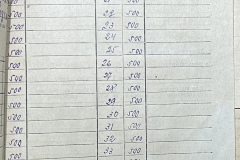 500
500 22 500
500 23 500
500 24 500
500 25 500
500 26 500
500 27 500
500 28 500
500 29 500
500 30 500
500 31 500
500 32 500
500 33 500